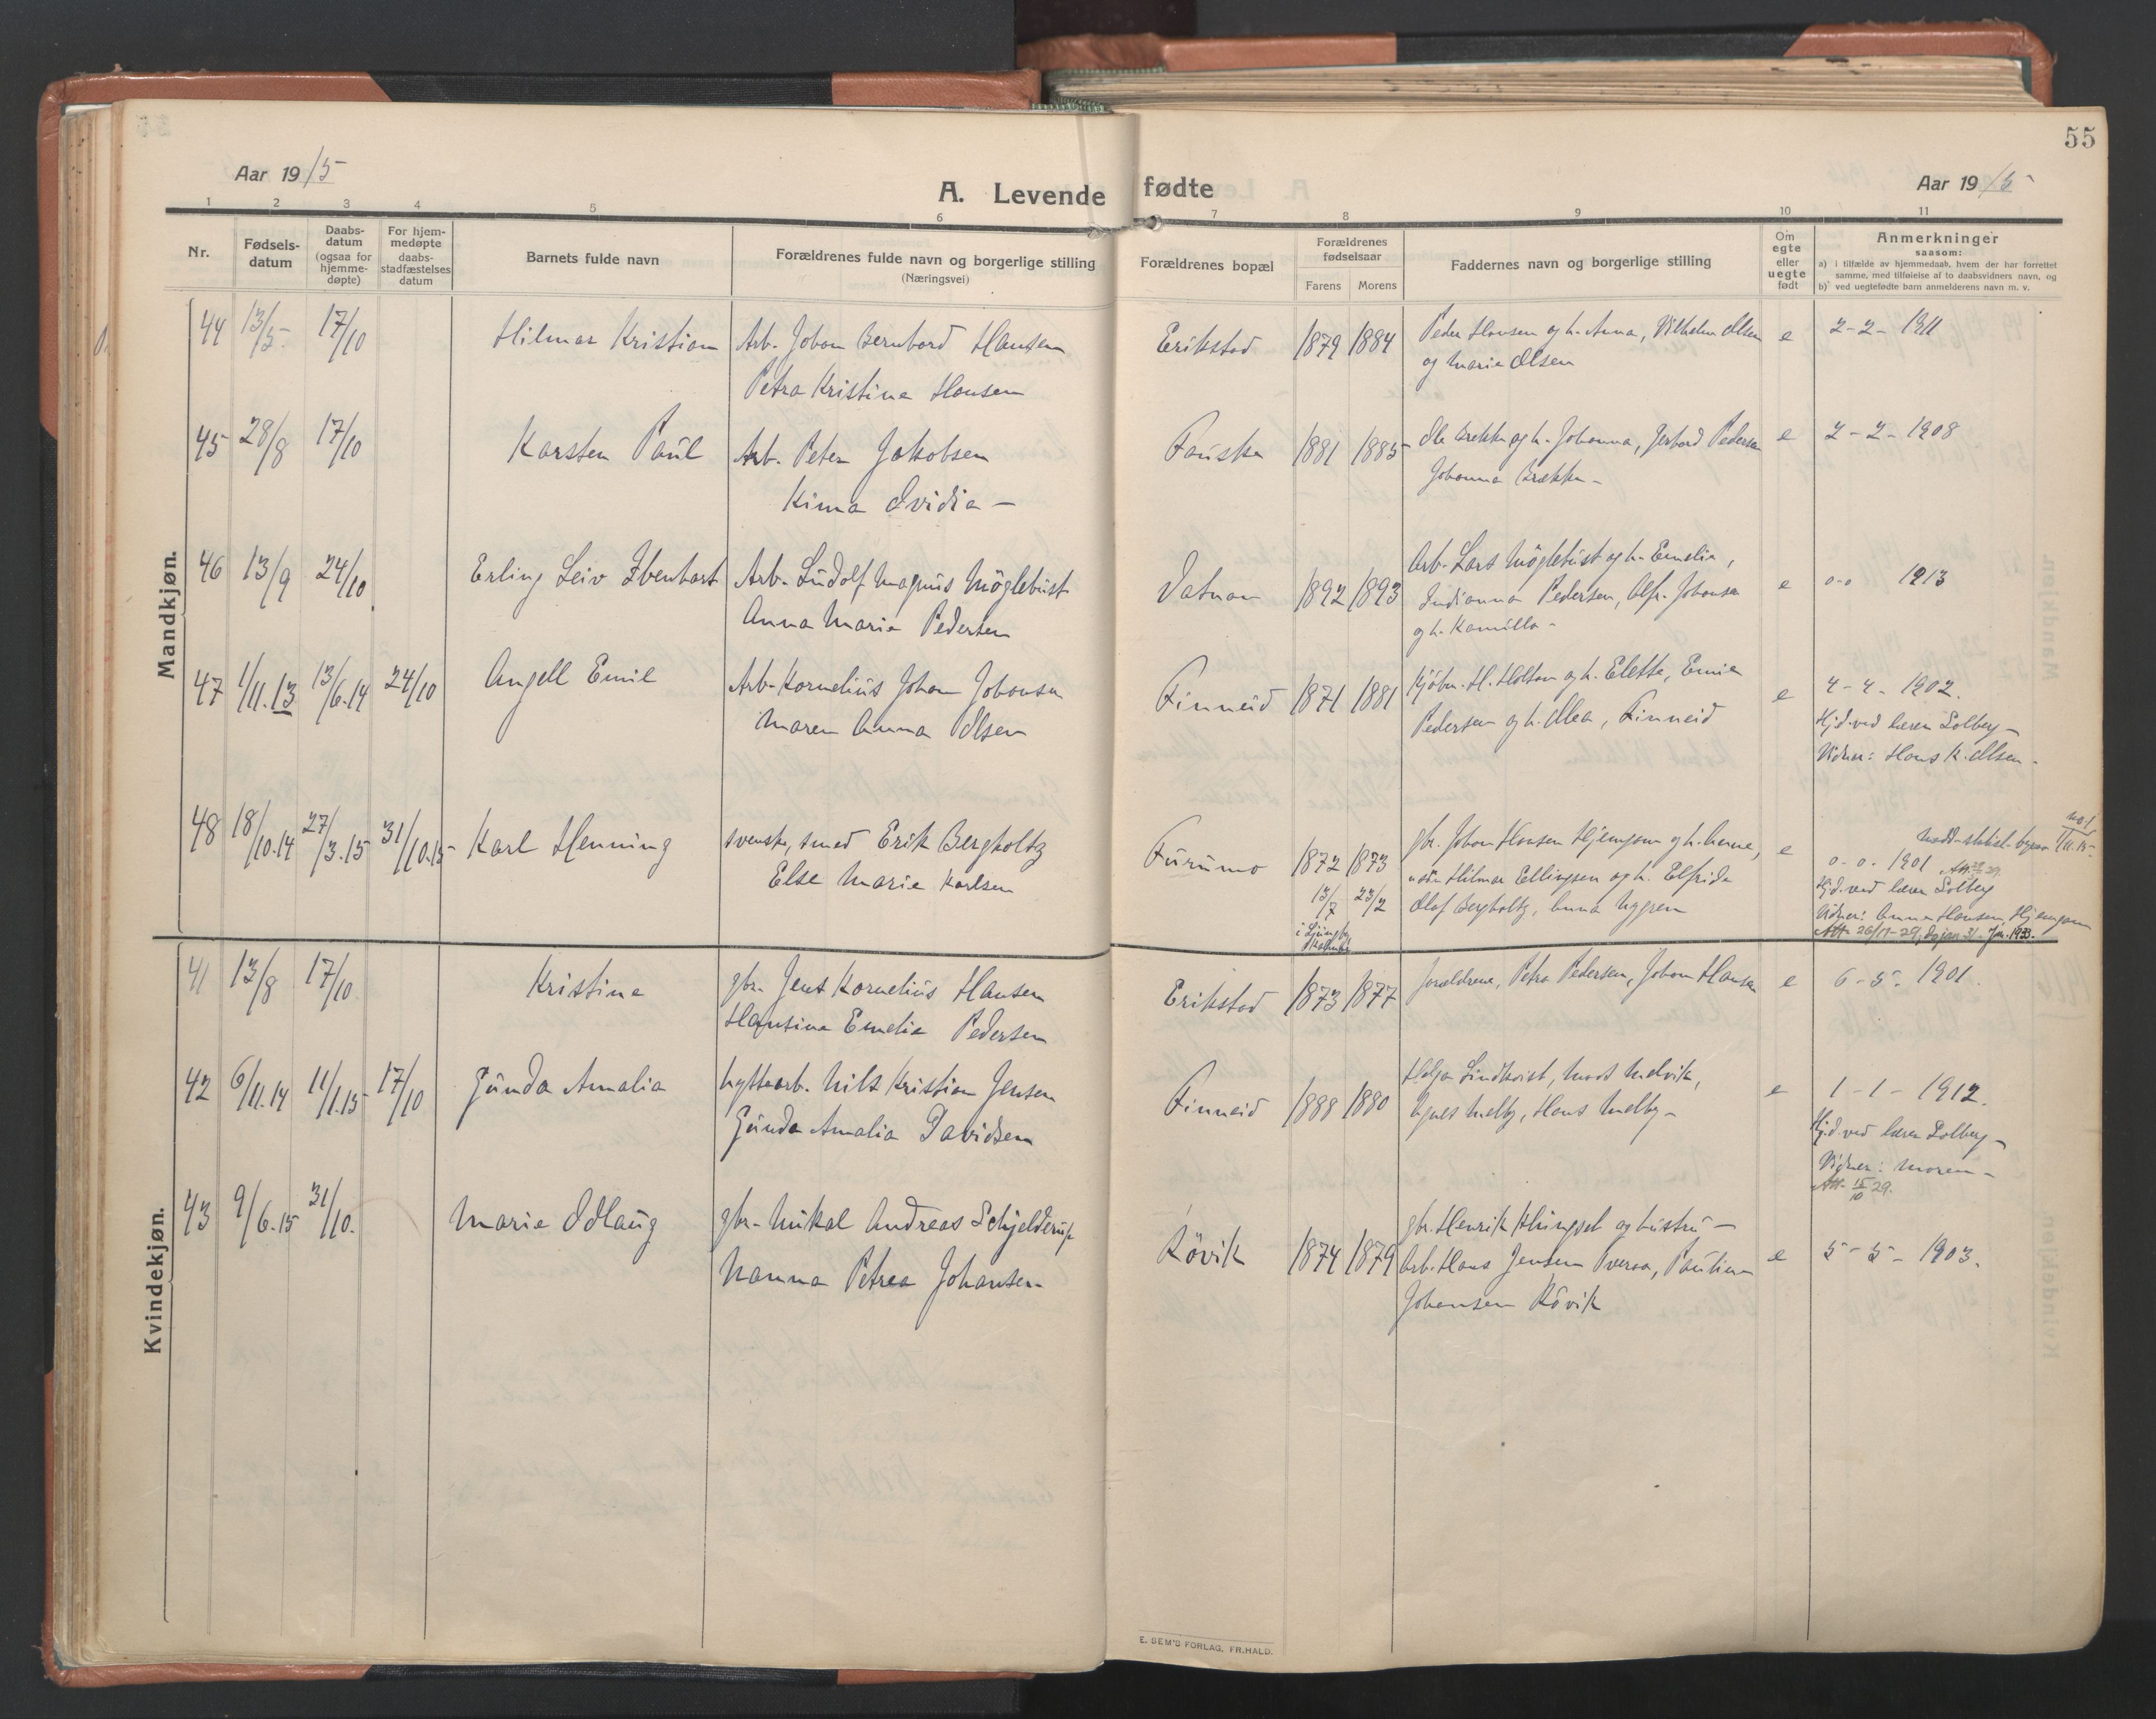 55
Aar 1915
A. Levende fødte
Aar 1915
1 2 3 4 5 6 7 8 9 10 11
Nr.
Fødsels-
datum
Daabs-
datum
(ogsaa for
hjemme-
døpte)
For hjem-
medøpte
daabs-
stadfæstelses
datum
Barnets fulde navn
Forældrenes fulde navn og borgerlige stilling
(Næringsvei)
Forældrenes bopæl
Forældrenes
fødselsaar
Farens Morens
Faddernes navn og borgerlige stilling
Om
egte
eller
uegte
født
Anmerkninger
saasom:
a) i tilfælde av hjemmedaab, hvem der har forrettet
samme, med tilføielse af to daabsvidners navn, og
b) ved uegtefødte barn anmelderens navn m. v.
Mandkjøn.
44 13/5 17/10 Hilmar Kristian Arb. Johan Bernhard Hansen Erikstad 1879 1884 Peder Hansen og h. Anna, Vilhelm Olsen e 2-2-1911
Petra Kristine Hansen og Marie Olsen
45 28/8 17/10 Karsten Paul Arb. Peter Jakobsen Fauske 1881 1885 Ole Brekke og h. Johanna, Gerhard Pedersen e 2-2-1908
Kima Ovidia - Johanna Brekke -
46 13/9 24/10 Erling Leiv Ebenhart Arb. Ludolf Magnus Møglebust Vatnan 1892 1893 Arb. Lars Møglebust og h. Emelia, e 0-0 1913
Anna Marie Pedersen Indianna Pedersen, Alfr. Johansen
og h. Kamilla -
47 1/11.13 13/6.14 24/10 Angell Emil Arb. Kornelius Johan Johansen Finneid 1871 1881 Kjøbm. H. Holtan og h. Elette, Emil e 4-4-1902.
Maren Anna Olsen Pedersen og h. Olea, Finneid
Hj.d. ved lærer Solberg -
Vidner: Hans K. Olsen -
48 18/10.14 27/3.15 31/10.15 Karl Henning svensk, smed Erik Bergholtz Furumo 1872 1873 gbr. Johan Hansen Hjemgam og h. Anne, e
Else Marie Karlsen 13/7 23/2 Hilmar Ellingsen og h. Elfrida
Olaf Bergholtz, Anna Nygren
0-0-1901
Hj.d. ved lærer Solberg
Vidner: Anna Hansen Hjemgam
Att. 26/11-29,
Kvindekjøn.
41 13/8 17/10 Kristine gbr. Jens Kornelius Hansen Erikstad 1873 1877 forældrene, Petra Pedersen, Johan Hansen e 6-5-1901.
Hansine Emelie Pedersen
42 6/11.14 11/1.15 17/10 Gunda Amalia hyttearb. Nils Kristian Jensen Finneid 1888 1880 Helga Lindkvist, Mads Melvik, e 1-1-1912.
Gunda Amalia Davidsen Agnes Melby, Hans Melby -
Hj.d. ved lærer Solberg -
Vidner: Moren -
Att. 15/10 29.
43 9/6.15 31/10. Marie Odlaug gbr. Mikal Andreas Schjelderup Røvik 1874 1879 gbr. Henrik Klungset og hustru - e 5-5-1903.
Nanna Petrea Johansen Arb. Hans Jensen Tveraa, Pauline
Johansen Røvik
E. SEM'S FORLAG, FR.HALD.